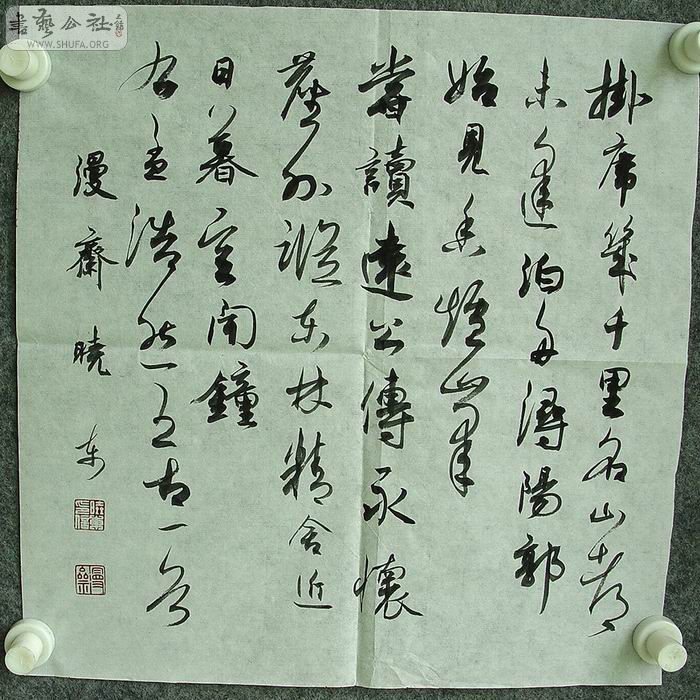 書藝公社
WWW.SHUFA.ORG
掛席幾千里名山都
未逢泊舟潯陽郭
始見香爐峯
嘗讀遠公傳永懷
塵外蹤東林精舍近
日暮空聞鐘
右孟浩然五古一首
漫齋曉東